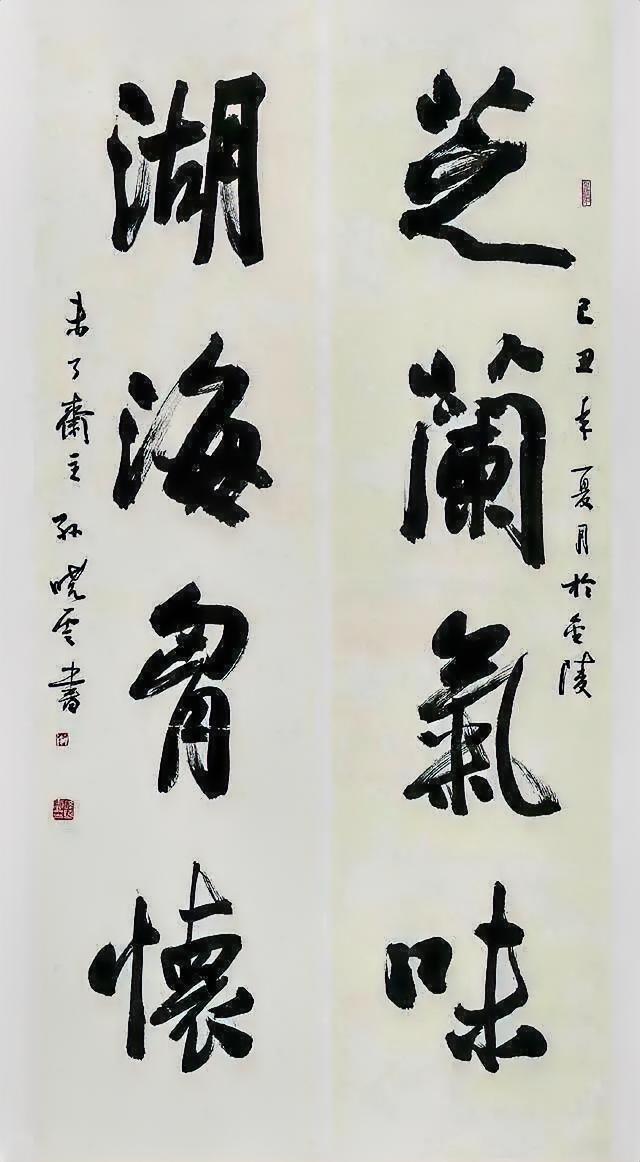 己丑年夏月於金陵
芝蘭氣味
湖海胷懷
未了齋主孫曉雲書